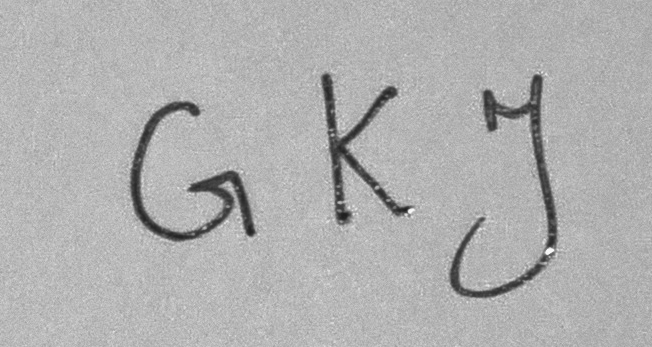 G K J